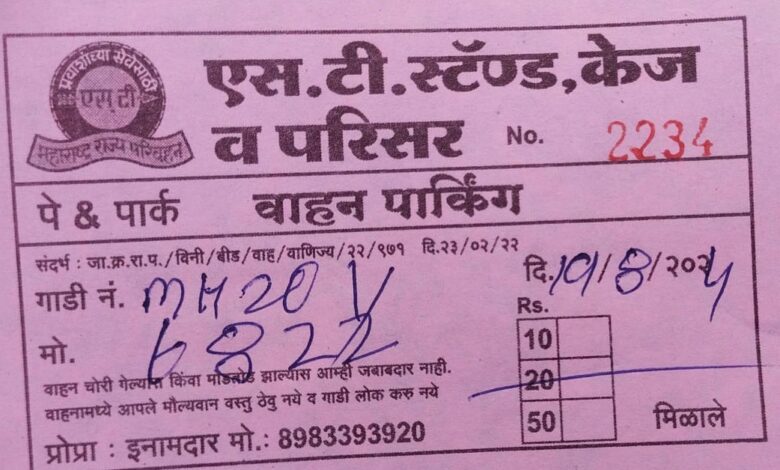 प्रवाशांच्या सेवेसाठी
एस् टी
महाराष्ट्र राज्य परिवहन
एस.टी.स्टॅण्ड,केज
व परिसर No. 2234
पे & पार्क वाहन पार्किंग
संदर्भ : जा.क्र.रा.प./विनी/बीड/वाह/वाणिज्य/२२/९७१ दि.२३/०२/२२
गाडी नं. MH20 V दि. 19/8/२०२
मो. 6822
Rs.
10
20
50 मिळाले
वाहन चोरी गेल्यास किंवा मोडतोड झाल्यास आम्ही जबाबदार नाही.
वाहनामध्ये आपले मौल्यवान वस्तु ठेवु नये व गाडी लोक करु नये
प्रोप्रा : इनामदार मो.: 8983393920